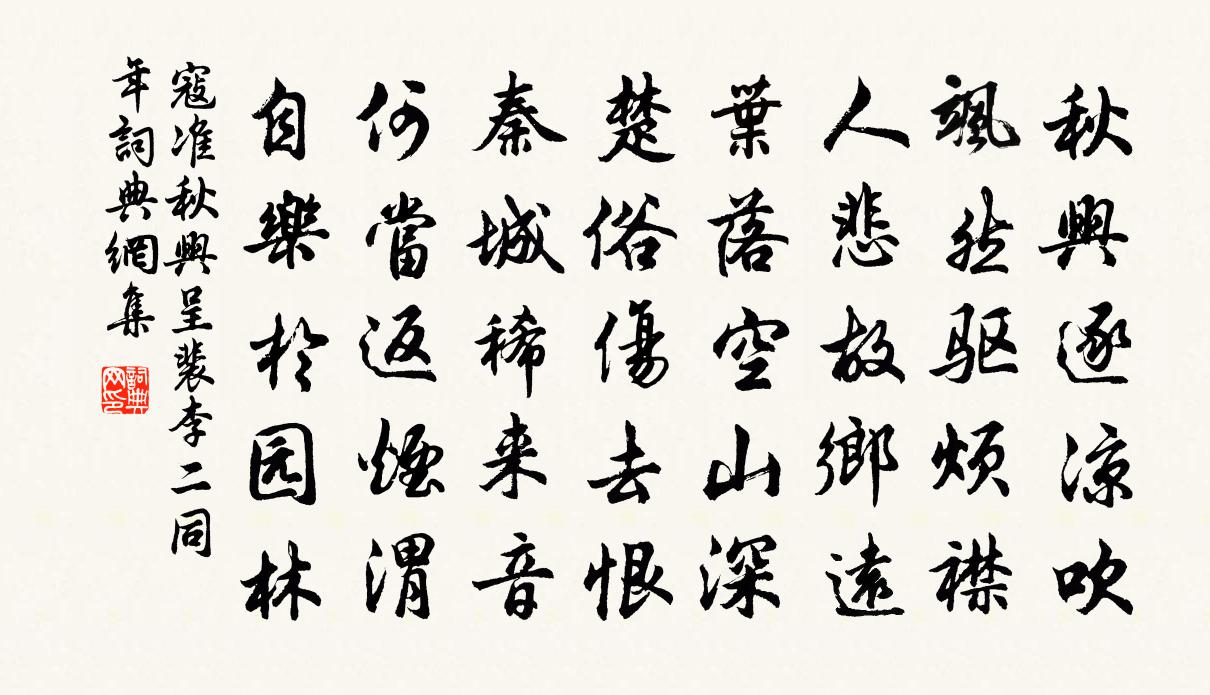 秋興逐涼吹
颯然驱煩襟
人悲故鄉遠
葉落空山深
楚俗傷去恨
秦城稀来音
何當返煙渭
自樂於园林
寇准秋興呈裴李二同
年詞典網集
詞典网印